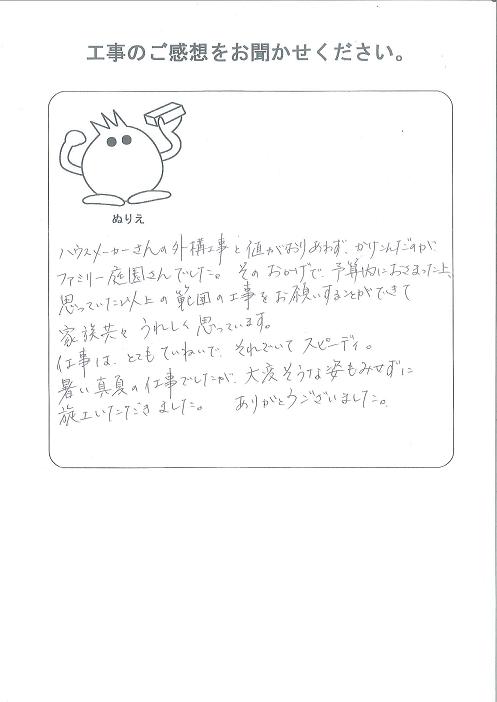 工事のご感想をお聞かせください。
ぬりえ
ハウスメーカーさんの外構工事と値がおりあわず、かけこんだのが
ファミリー庭園さんでした。そのおかげで、予算内におさまった上、
思っていた以上の範囲の工事をお願いすることができて
家族共々うれしく思っています。
仕事は、とてもていねいで、それでいてスピーディ。
暑い真夏の仕事でしたが、大変そうな姿もみせずに
施工いただきました。 ありがとうございました。